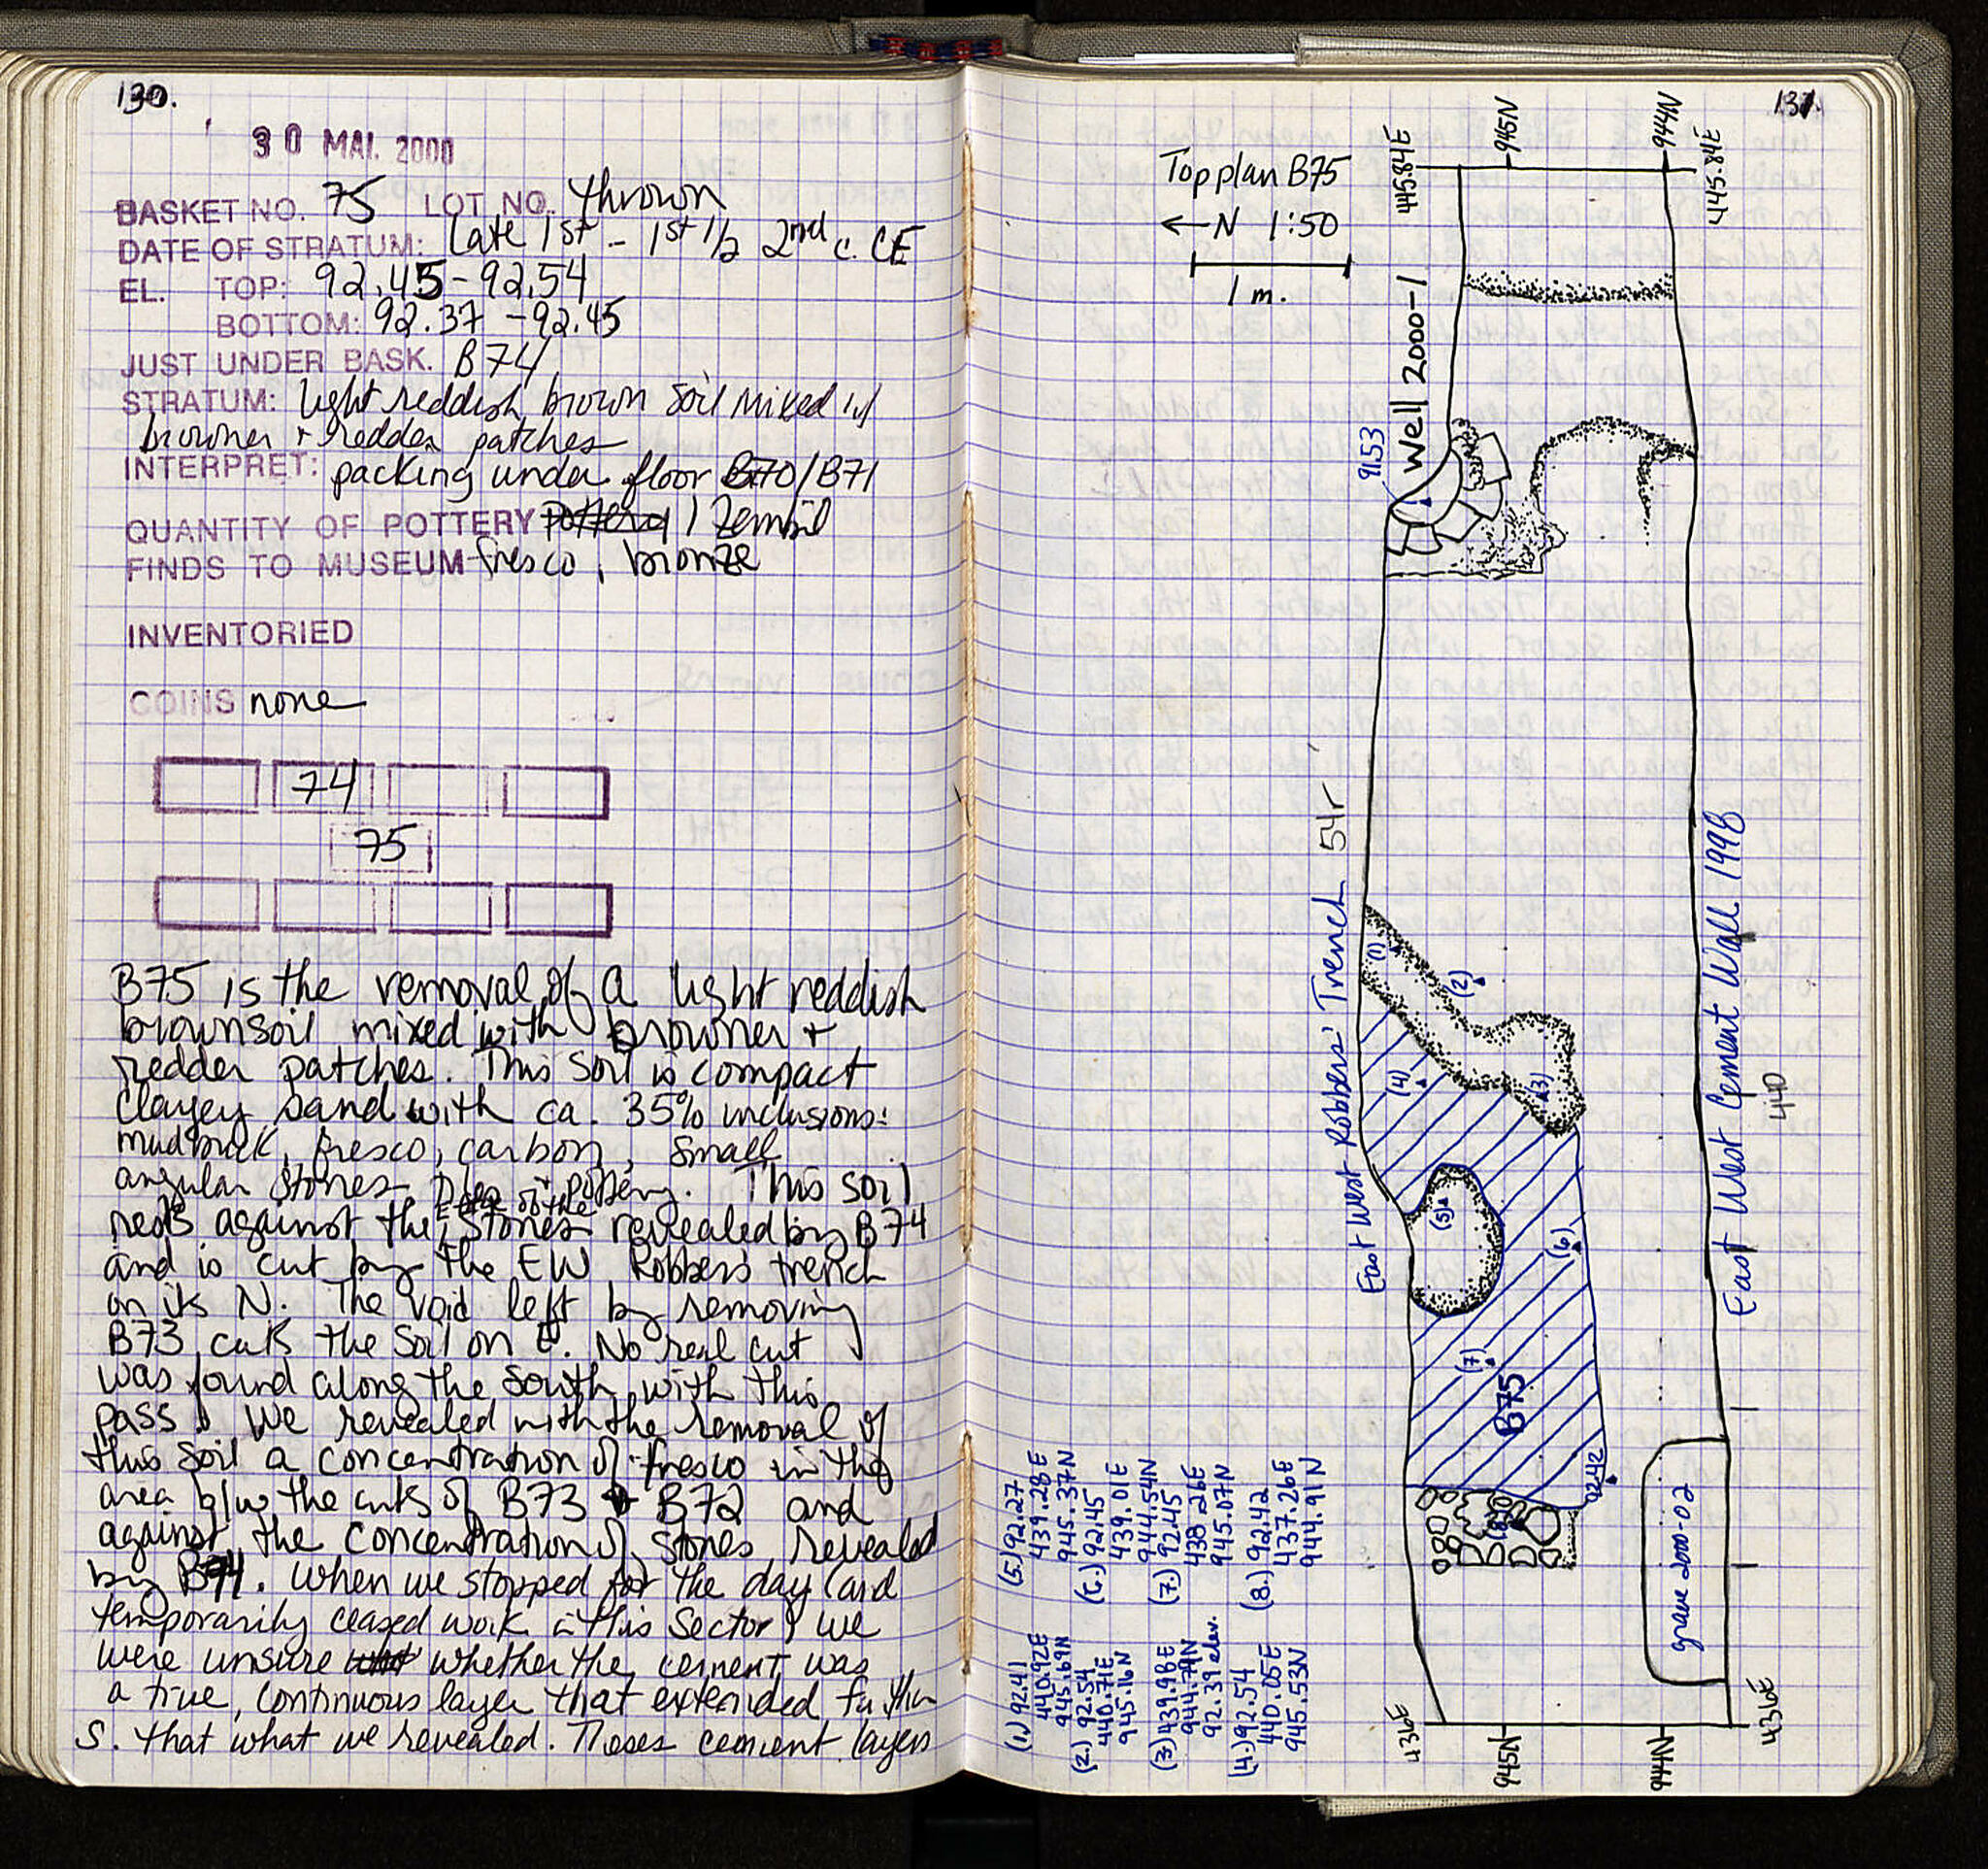 130.
30 MAI. 2000
BASKET NO. 75 LOT NO. thrown
DATE OF STRATUM: late 1st - 1st 1/2 2nd c. CE
EL. TOP: 92.45-92.54
BOTTOM: 92.37 - 92.45
JUST UNDER BASK. B74
STRATUM: light reddish brown soil mixed w/
browner + redder patches
INTERPRET: packing under floor B70/B71
QUANTITY OF POTTERY pottery 1 zembil
FINDS TO MUSEUM fresco, bronze
INVENTORIED
COINS none
74
75
B75 is the removal of a light reddish
brown soil mixed with browner +
redder patches. This soil is compact
clayey sand with ca. 35% inclusions:
mudbrick, fresco, carbon, small
angular stones, tiles + pottery. This soil
rests against the E of the stones revealed by B74
and is cut by the EW Robbers' trench
on its N. The void left by removing
B73 cuts the soil on E. No real cut
was found along the South with this
pass. We revealed with the removal of
this soil a concentration of fresco in the
area b/w the cuts of B73 + B72 and
against the concentration of stones revealed
by B74. When we stopped for the day (and
temporarily ceased work in this sector) we
were unsure what whether the cement was
a true, continuous layer that extended further
S. that what we revealed. Theses cement layers
137.
Top plan B75
←N 1:50
1 m.
445.84E
945N
944N
445.84E
Well 2000-1
91.53
East West Robbers' Trench 54r
East West Cement Wall 1998
440
(1)
(2)
(3)
(4)
(5)
(6)
(7)
B75
92.42
(8)
grave 2000-02
436E
945N
944N
436E
(1.) 92.41
440.92E
945.69N
(2.) 92.54
440.71E
945.16N
(3.) 439.98E
944.79N
92.39 elev.
(4.) 92.54
440.05E
945.53N
(5.) 92.27
439.28E
945.37N
(6.) 92.45
439.01E
944.54N
(7.) 92.45
438.26E
945.07N
(8.) 92.42
437.26E
944.91N